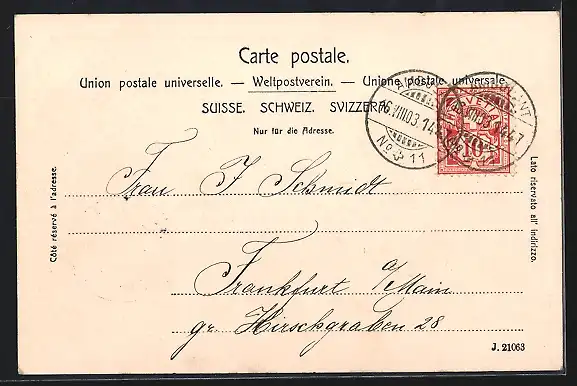 Carte postale.
Union postale universelle. — Weltpostverein. — Unione postale universale.
SUISSE. SCHWEIZ. SVIZZERA.
Nur für die Adresse.
16.VIII03.
No 11
10
Côté réservé à l'adresse.
Lato riservato all' indirizzo.
Frau J Schmidt
Frankfurt a/Main
gr. Hirschgraben 28
J. 21063